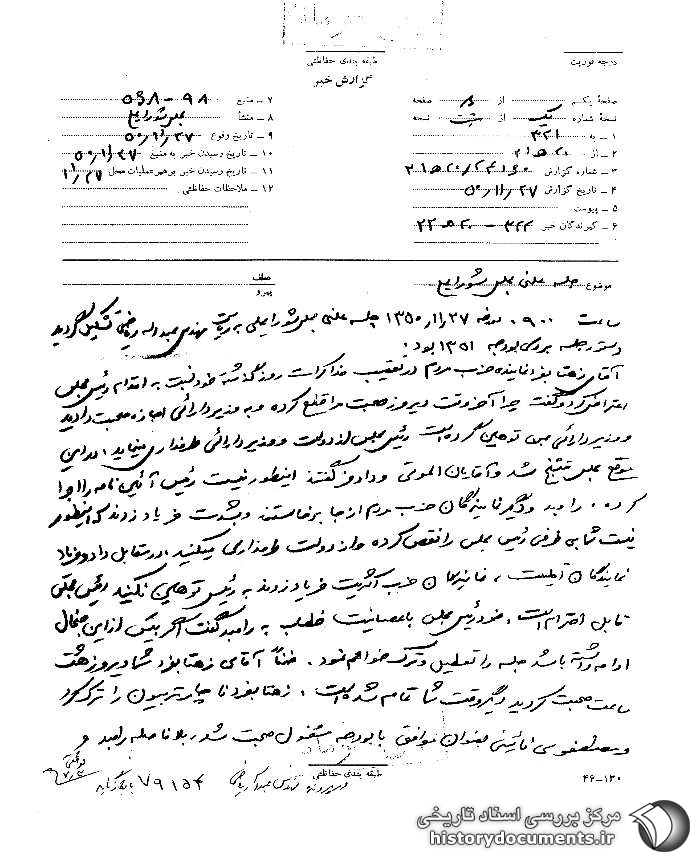 درجه فوریت
طبقه بندی حفاظتی
گزارش خبر
صفحه یکم از ۸ صفحه
نسخه شماره یک از نسخه
۱ ـ به ۳۲۱
۲ ـ از ۲۰ ه ۲۱
۳ ـ شماره گزارش
۴ ـ تاریخ گزارش ۵۰/۱۱/۲۷
۵ ـ پیوست
۶ ـ گیرندگان خبر ۳۲۲ ـ ۲۰ ه ۲۲
۷ ـ منبع
۸ ـ منشأ مجلس شورایملی
۹ ـ تاریخ وقوع ۵۰/۱۱/۲۷
۱۰ ـ تاریخ رسیدن خبر به منبع ۵۰/۱۱/۲۷
۱۱ ـ تاریخ رسیدن خبر برهبر عملیات محل ۱۱/۲۷
۱۲ ـ ملاحظات حفاظتی
موضوع جلسه علنی مجلس شورایملی
عطف
پیرو
ساعت ۰۹۰۰ مورخه ۱۳۵۰/۱۱/۲۷ جلسه علنی مجلس شورایملی به ریاست مهندس عبداله ریاضی تشکیل گردید
دستور جلسه بررسی بودجه ۱۳۵۱ بود:
آقای زهتابفرد نماینده حزب مردم در تعقیب مذاکرات روز گذشته خود نسبت به اقدام رئیس مجلس
اعتراض کرد و گفت چرا آخر وقت دیروز صحبت مرا قطع کرده و به وزیر دارائی اجازه صحبت دادید
و وزیر دارائی بمن توهین کرده است رئیس مجلس از دولت و وزیر دارائی طرفداری مینماید، در این
موقع مجلس متشنج شد و آقایان الموتی و دادفر گفتند اینطور نیست رئیس آئین نامه را اجرا
کرده. رامبد و دیگر نمایندگان حزب مردم از جا برخاستند و بشدت فریاد زدند که اینطور
نیست شما بی طرفی رئیس مجلس را نقض کرده و از دولت طرفداری میکنید. در مقابل داد و فریاد
نمایندگان اقلیت، نمایندگان حزب اکثریت فریاد زدند به رئیس توهین نکنید رئیس مملکتی
قابل احترام است، خود رئیس مجلس با عصبانیت خطاب به رامبد گفت اگر بیش از این جنجال
ادامه داشته باشد جلسه را تعطیل و ترک خواهم نمود. ضمناً آقای زهتابفرد شما دیروز هشت
ساعت صحبت کردید دیگر وقت شما تمام شده است. زهتابفرد ناچار تریبون را ترک کرد
و مصطفوی نائینی بعنوان موافق با بودجه مشغول صحبت شد، بلافاصله رامبد و
طبقه بندی حفاظتی
۴۶-۱۲۰
مهندس عبداله ریاضی
۷۹۱۵۴
مرکز بررسی اسناد تاریخی
historydocuments.ir